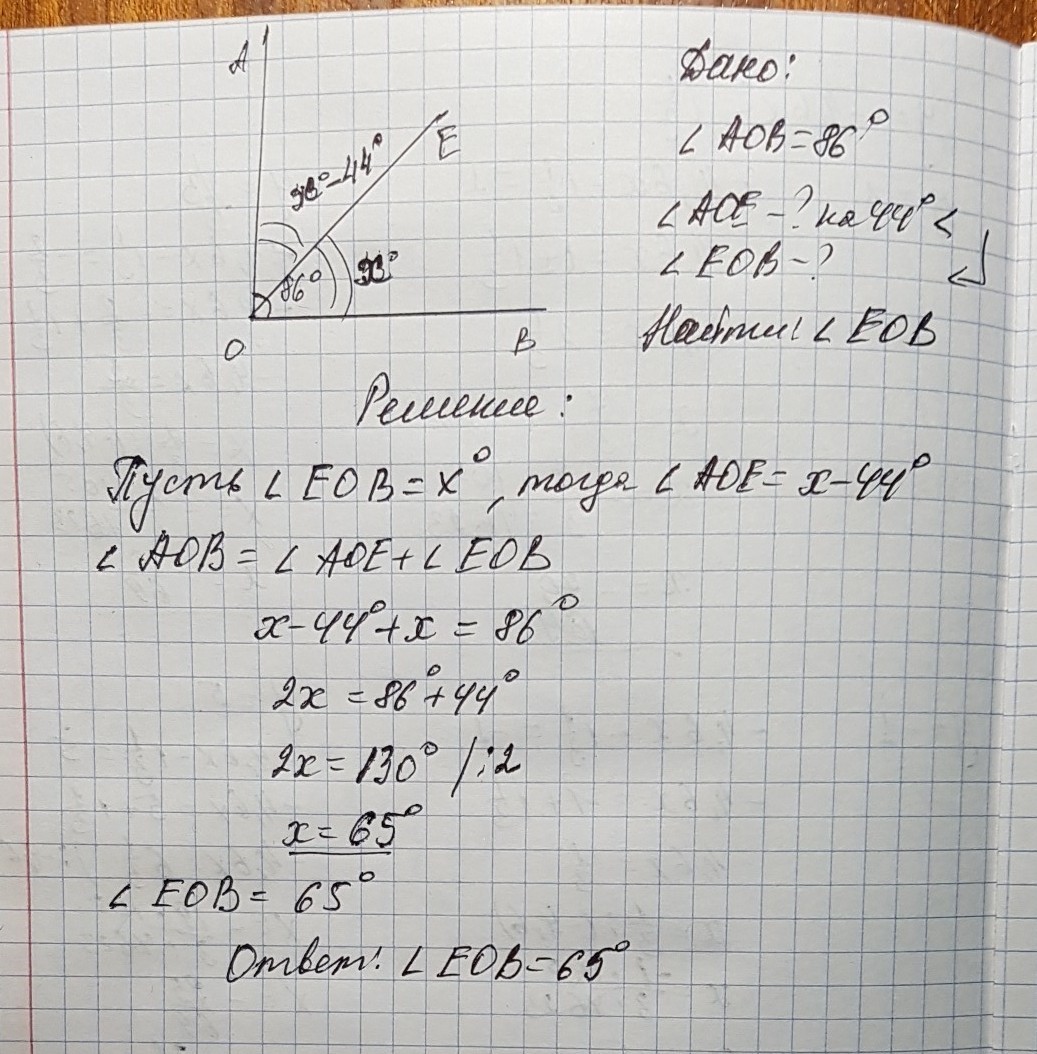 A
E
x°-44°
86°
x°
O
B
Дано:
∠ AOB = 86°
∠ AOE - ? на 44° <
∠ EOB - ?
Найти: ∠ EOB
Решение:
Пусть ∠ EOB = x°, тогда ∠ AOE = x-44°
∠ AOB = ∠ AOE + ∠ EOB
x-44°+x = 86°
2x = 86°+44°
2x = 130° /:2
x = 65°
∠ EOB = 65°
Ответ: ∠ EOB = 65°